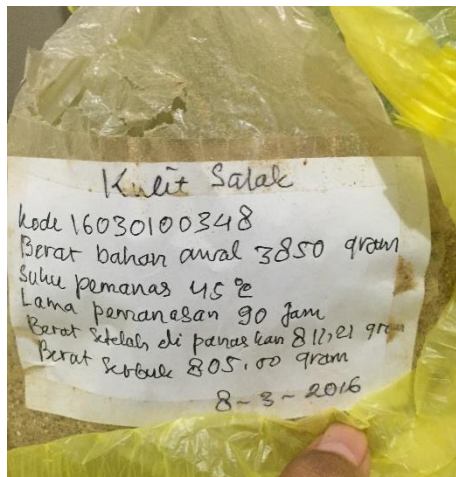 Kulit Salak
kode 16030100348
Berat bahan awal 3850 gram
Suhu pemanas 45 °C
Lama pemanasan 90 Jam
Berat setelah di panaskan 811,21 gram
Berat serbuk 805,00 gram
8-3-2016